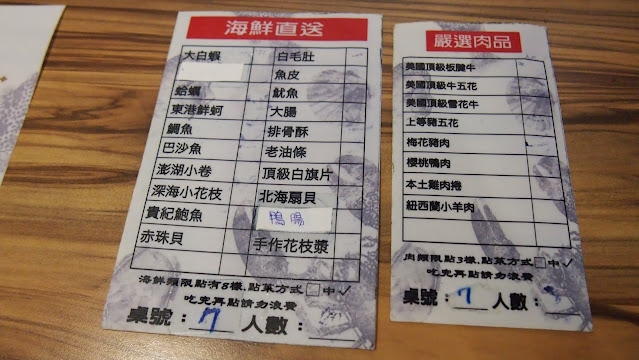 海鮮直送
大白蝦 白毛肚
魚皮
蛤蠣 魷魚
東港鮮蚵 大腸
鯛魚 排骨酥
巴沙魚 老油條
澎湖小卷 頂級白旗片
深海小花枝 北海扇貝
貴紀鮑魚 鴨腸
赤珠貝 手作花枝漿
海鮮類限點有5樣,點菜方式□中✓
吃完再點請勿浪費
桌號:7 人數:
嚴選肉品
美國頂級板腱牛
美國頂級牛五花
美國頂級雪花牛
上等豬五花
梅花豬肉
櫻桃鴨肉
本土雞肉捲
紐西蘭小羊肉
肉類限點3樣,點菜方式□中✓
吃完再點請勿浪費
桌號:7 人數: